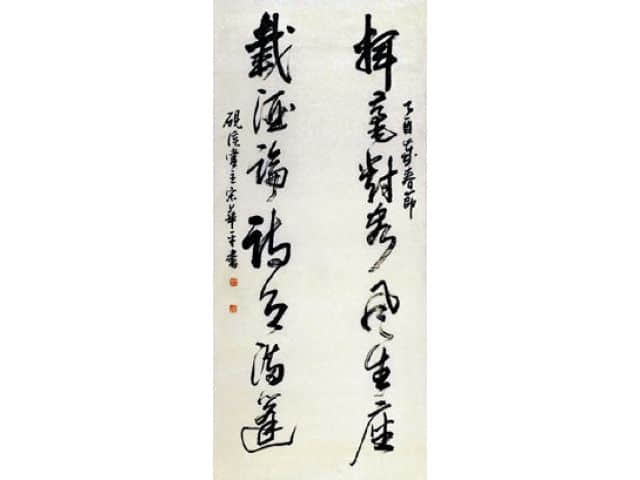 揮毫對客風生座
丁酉歲春節
載酒論詩月滿篷
硯溪堂主宋華平書